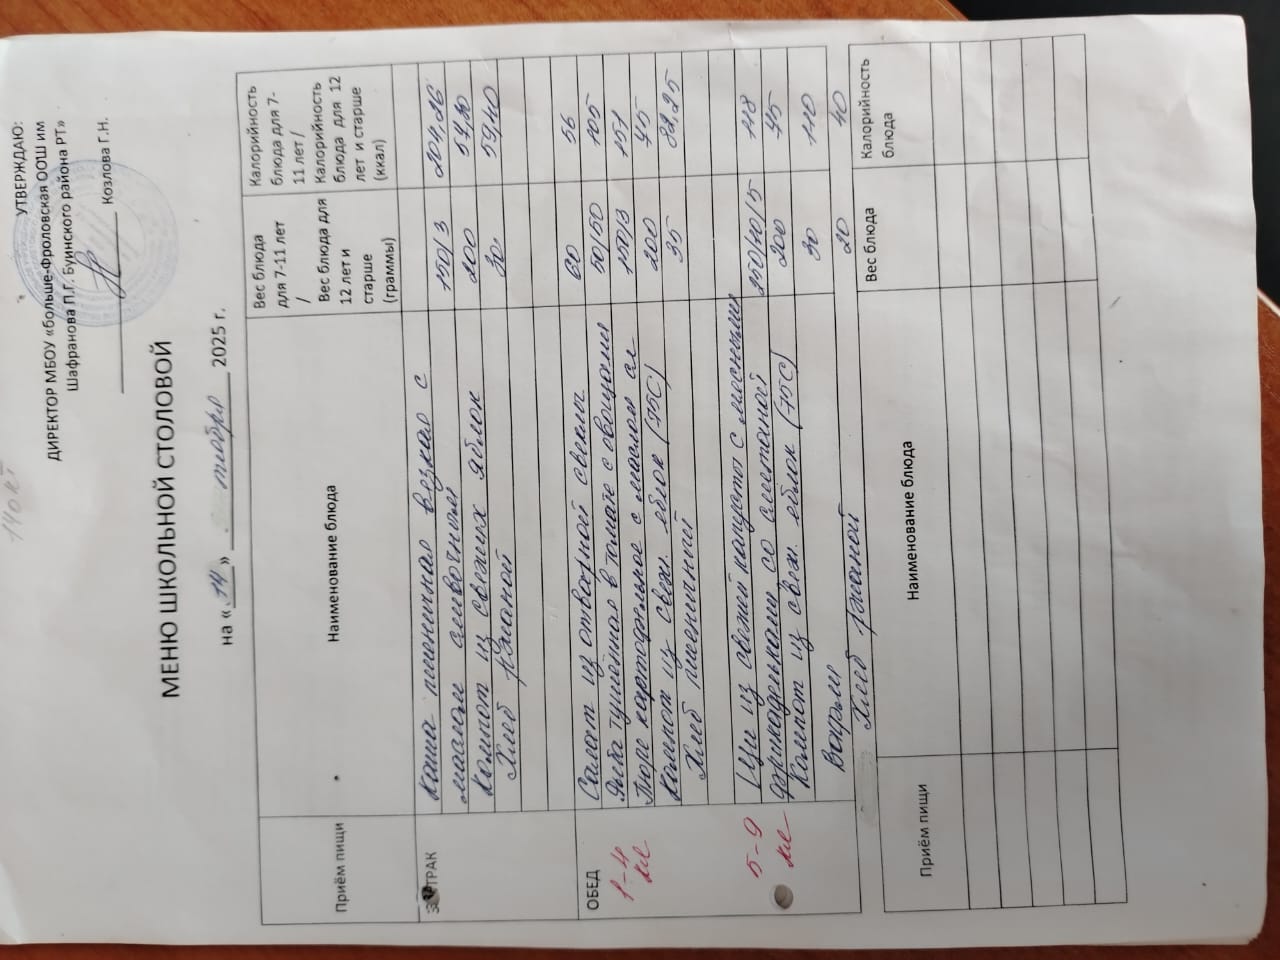 УТВЕРЖДАЮ:
ДИРЕКТОР МБОУ «больше-Фроловская ООШ им
Шафранова П.Г. Буинского района РТ»
Козлова Г.Н.
МЕНЮ ШКОЛЬНОЙ СТОЛОВОЙ
на « 14 » 2025 г.
Приём пищи
Наименование блюда
Вес блюда для 7-11 лет / Вес блюда для 12 лет и старше (граммы)
Калорийность блюда для 7-11 лет / Калорийность блюда для 12 лет и старше (ккал)
ЗАВТРАК
каша пшеничная вязкая с
маслом сливочным 150/3 204.26
компот из свежих яблок 200
Хлеб ржаной 30 59,40
ОБЕД
1-4 кл
Салат из отварной свеклы 60 56
Рыба тушённая в томате с овощами 50/50 105
Пюре картофельное с маслом сл 150/3 151
Компот из свеж. яблок (75С) 200 75
Хлеб пшеничный 35 82,25
5-9 кл
Щи из свежей капусты с мясными
фрикадельками, со сметаной 250/40/5 118
Компот из свеж. яблок (75С) 200 75
Вафли 30 110
Хлеб ржаной 20 40
Приём пищи
Наименование блюда
Вес блюда
Калорийность блюда